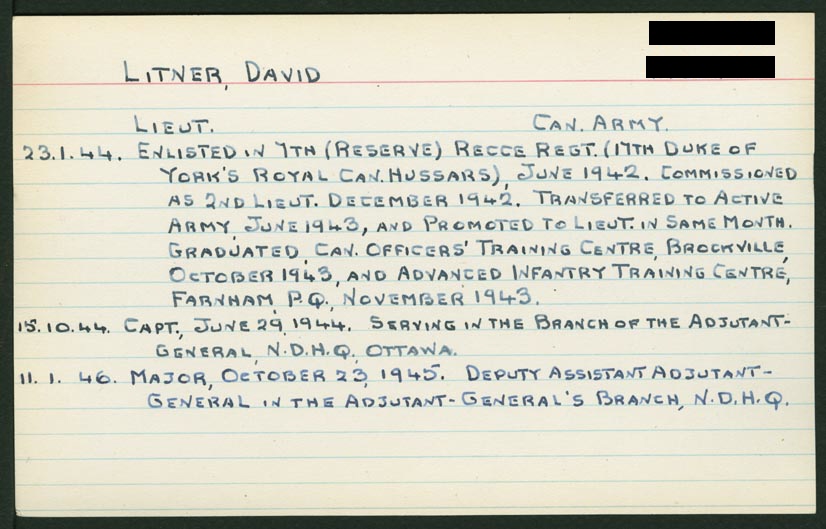 LITNER, DAVID
LIEUT. CAN. ARMY.
23.1.44. ENLISTED IN 7TH (RESERVE) RECCE REGT. (17TH DUKE OF
YORK'S ROYAL CAN. HUSSARS), JUNE 1942. COMMISSIONED
AS 2ND LIEUT. DECEMBER 1942. TRANSFERRED TO ACTIVE
ARMY, JUNE 1943, AND PROMOTED TO LIEUT. IN SAME MONTH.
GRADUATED, CAN. OFFICERS' TRAINING CENTRE, BROCKVILLE,
OCTOBER 1943, AND ADVANCED INFANTRY TRAINING CENTRE,
FARNHAM, P.Q., NOVEMBER 1943.
15.10.44. CAPT., JUNE 29, 1944. SERVING IN THE BRANCH OF THE ADJUTANT-
GENERAL, N.D.H.Q., OTTAWA.
11.1.46. MAJOR, OCTOBER 23, 1945. DEPUTY ASSISTANT ADJUTANT-
GENERAL IN THE ADJUTANT-GENERAL'S BRANCH, N.D.H.Q.